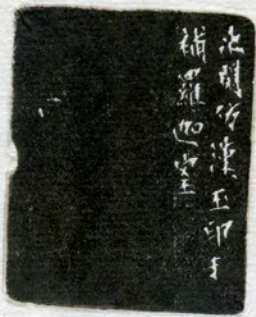 次閑仿漢玉印于
補羅迦室